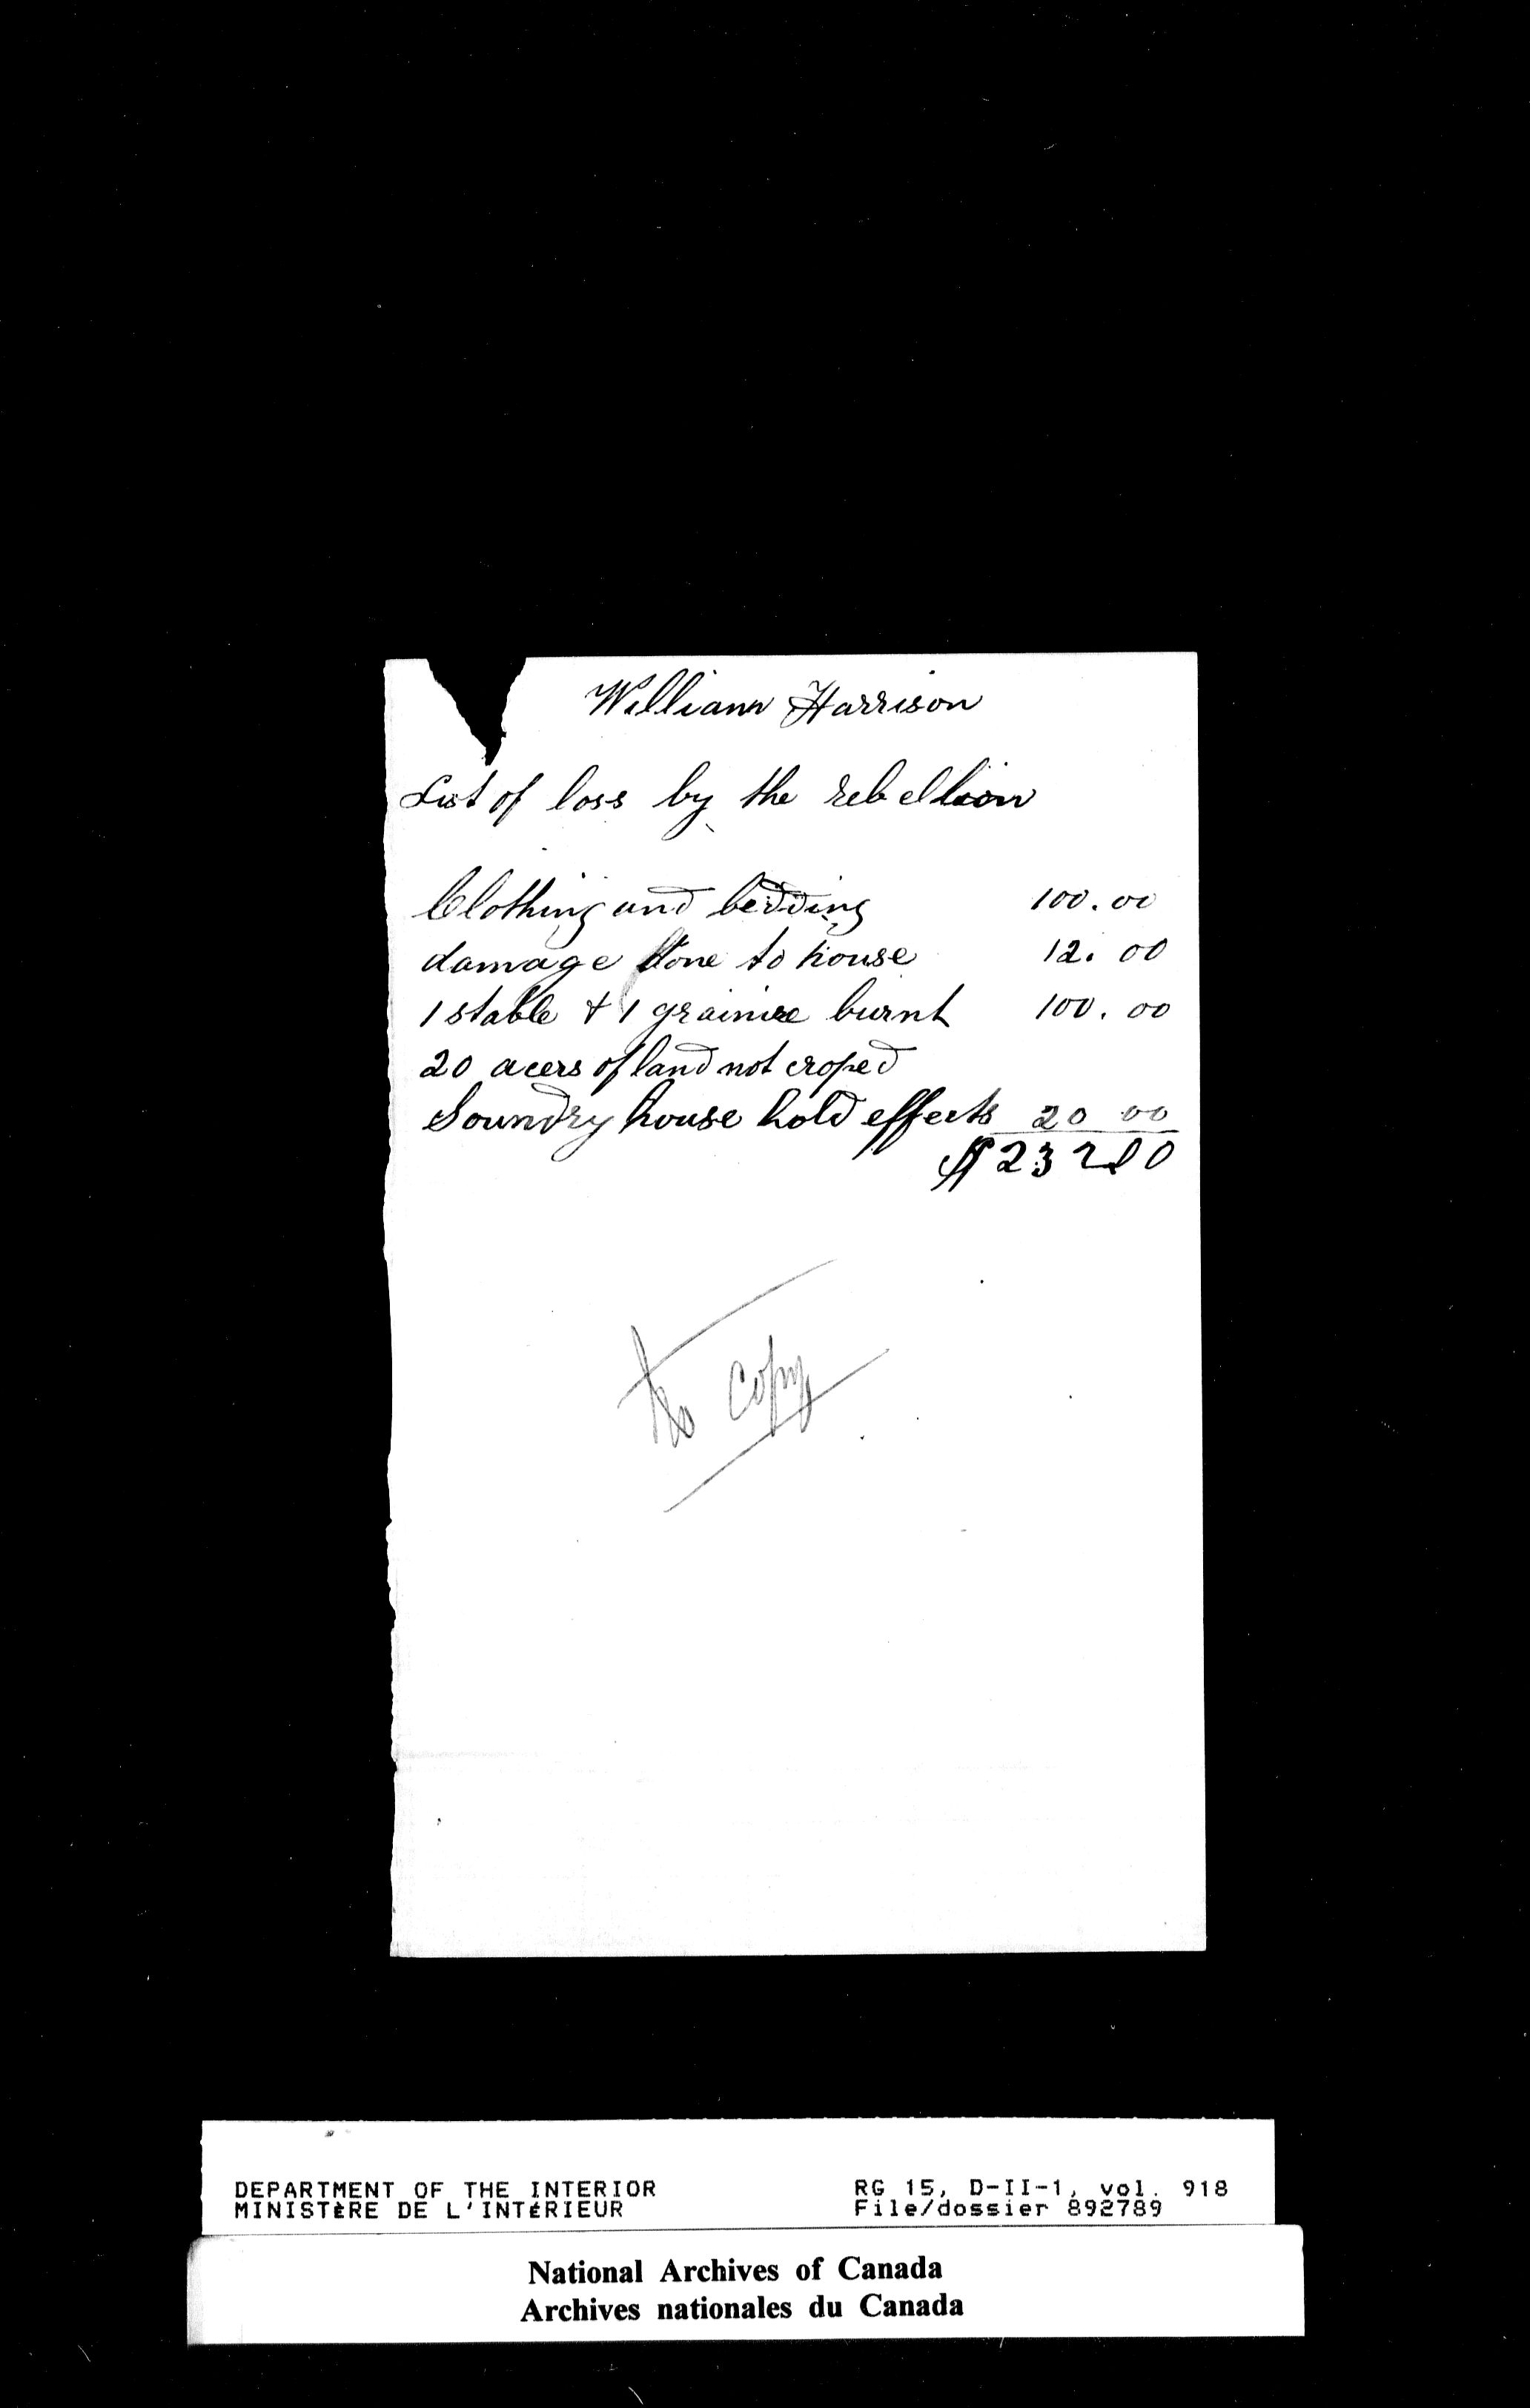 William Harrison
List of loss by the rebellion
Clothing and bedding 100.00
damage done to house 12.00
1 stable + 1 grainire burnt 100.00
20 acers of land not croped
Soundry house hold effects 20 00
$ 23200
No Copy
DEPARTMENT OF THE INTERIOR RG 15, D-II-1, vol. 918
MINISTÈRE DE L'INTÉRIEUR File/dossier 892789
National Archives of Canada
Archives nationales du Canada